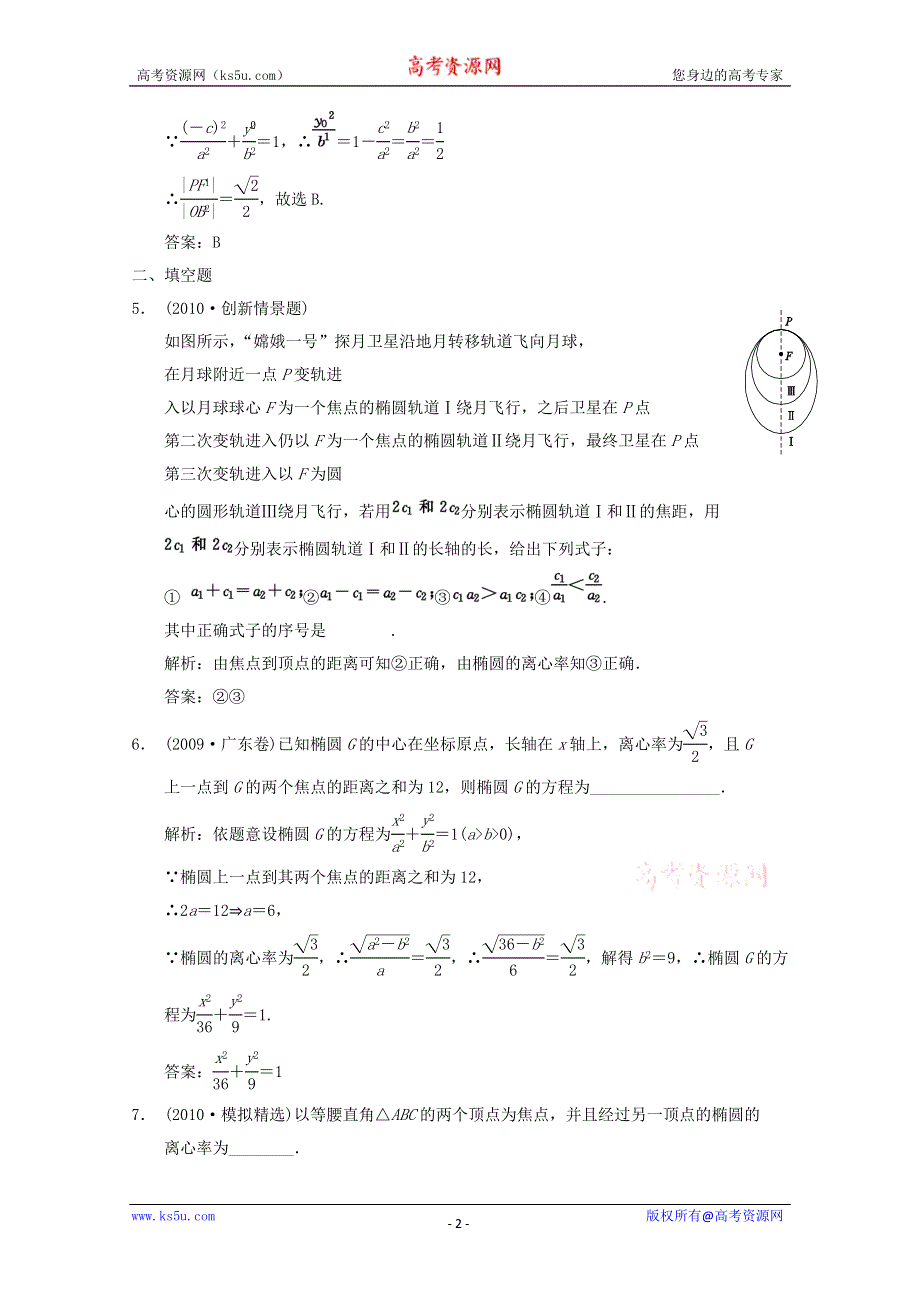 高考资源网（ks5u.com） 高考资源网 您身边的高考专家
∵(－c)²/a²＋y⁰/b²＝1，∴y₀²/b¹＝1－c²/a²＝b²/a²＝1/2
∴|PF¹|/|OB²|＝√2/2，故选B.
答案：B
二、填空题
5． (2010·创新情景题)
如图所示，“嫦娥一号”探月卫星沿地月转移轨道飞向月球，
在月球附近一点P变轨进
入以月球球心F为一个焦点的椭圆轨道Ⅰ绕月飞行，之后卫星在P点
第二次变轨进入仍以F为一个焦点的椭圆轨道Ⅱ绕月飞行，最终卫星在P点
第三次变轨进入以F为圆
心的圆形轨道Ⅲ绕月飞行，若用2c₁ 和 2c₂分别表示椭圆轨道Ⅰ和Ⅱ的焦距，用
2c₁ 和 2c₂分别表示椭圆轨道Ⅰ和Ⅱ的长轴的长，给出下列式子：
① a₁＋c₁＝a₂＋c₂；②a₁－c₁＝a₂－c₂；③c₁a₂＞a₁c₂；④c₁/a₁＜c₂/a₂．
其中正确式子的序号是 ．
解析：由焦点到顶点的距离可知②正确，由椭圆的离心率知③正确．
答案：②③
P
F
Ⅲ
Ⅱ
Ⅰ
6． (2009·广东卷)已知椭圆G的中心在坐标原点，长轴在x轴上，离心率为√3/2，且G
上一点到G的两个焦点的距离之和为12，则椭圆G的方程为________________．
解析：依题意设椭圆G的方程为x²/a²＋y²/b²＝1(a>b>0)，
∵椭圆上一点到其两个焦点的距离之和为12，
高考资源网
∴2a＝12⇒a＝6，
∵椭圆的离心率为√3/2，∴√(a²－b²)/a＝√3/2，∴√(36－b²)/6＝√3/2，解得b²＝9，∴椭圆G的方
程为x²/36＋y²/9＝1．
答案：x²/36＋y²/9＝1
7． (2010·模拟精选)以等腰直角△ABC的两个顶点为焦点，并且经过另一顶点的椭圆的
离心率为________．
www.ks5u.com - 2 - 版权所有@高考资源网